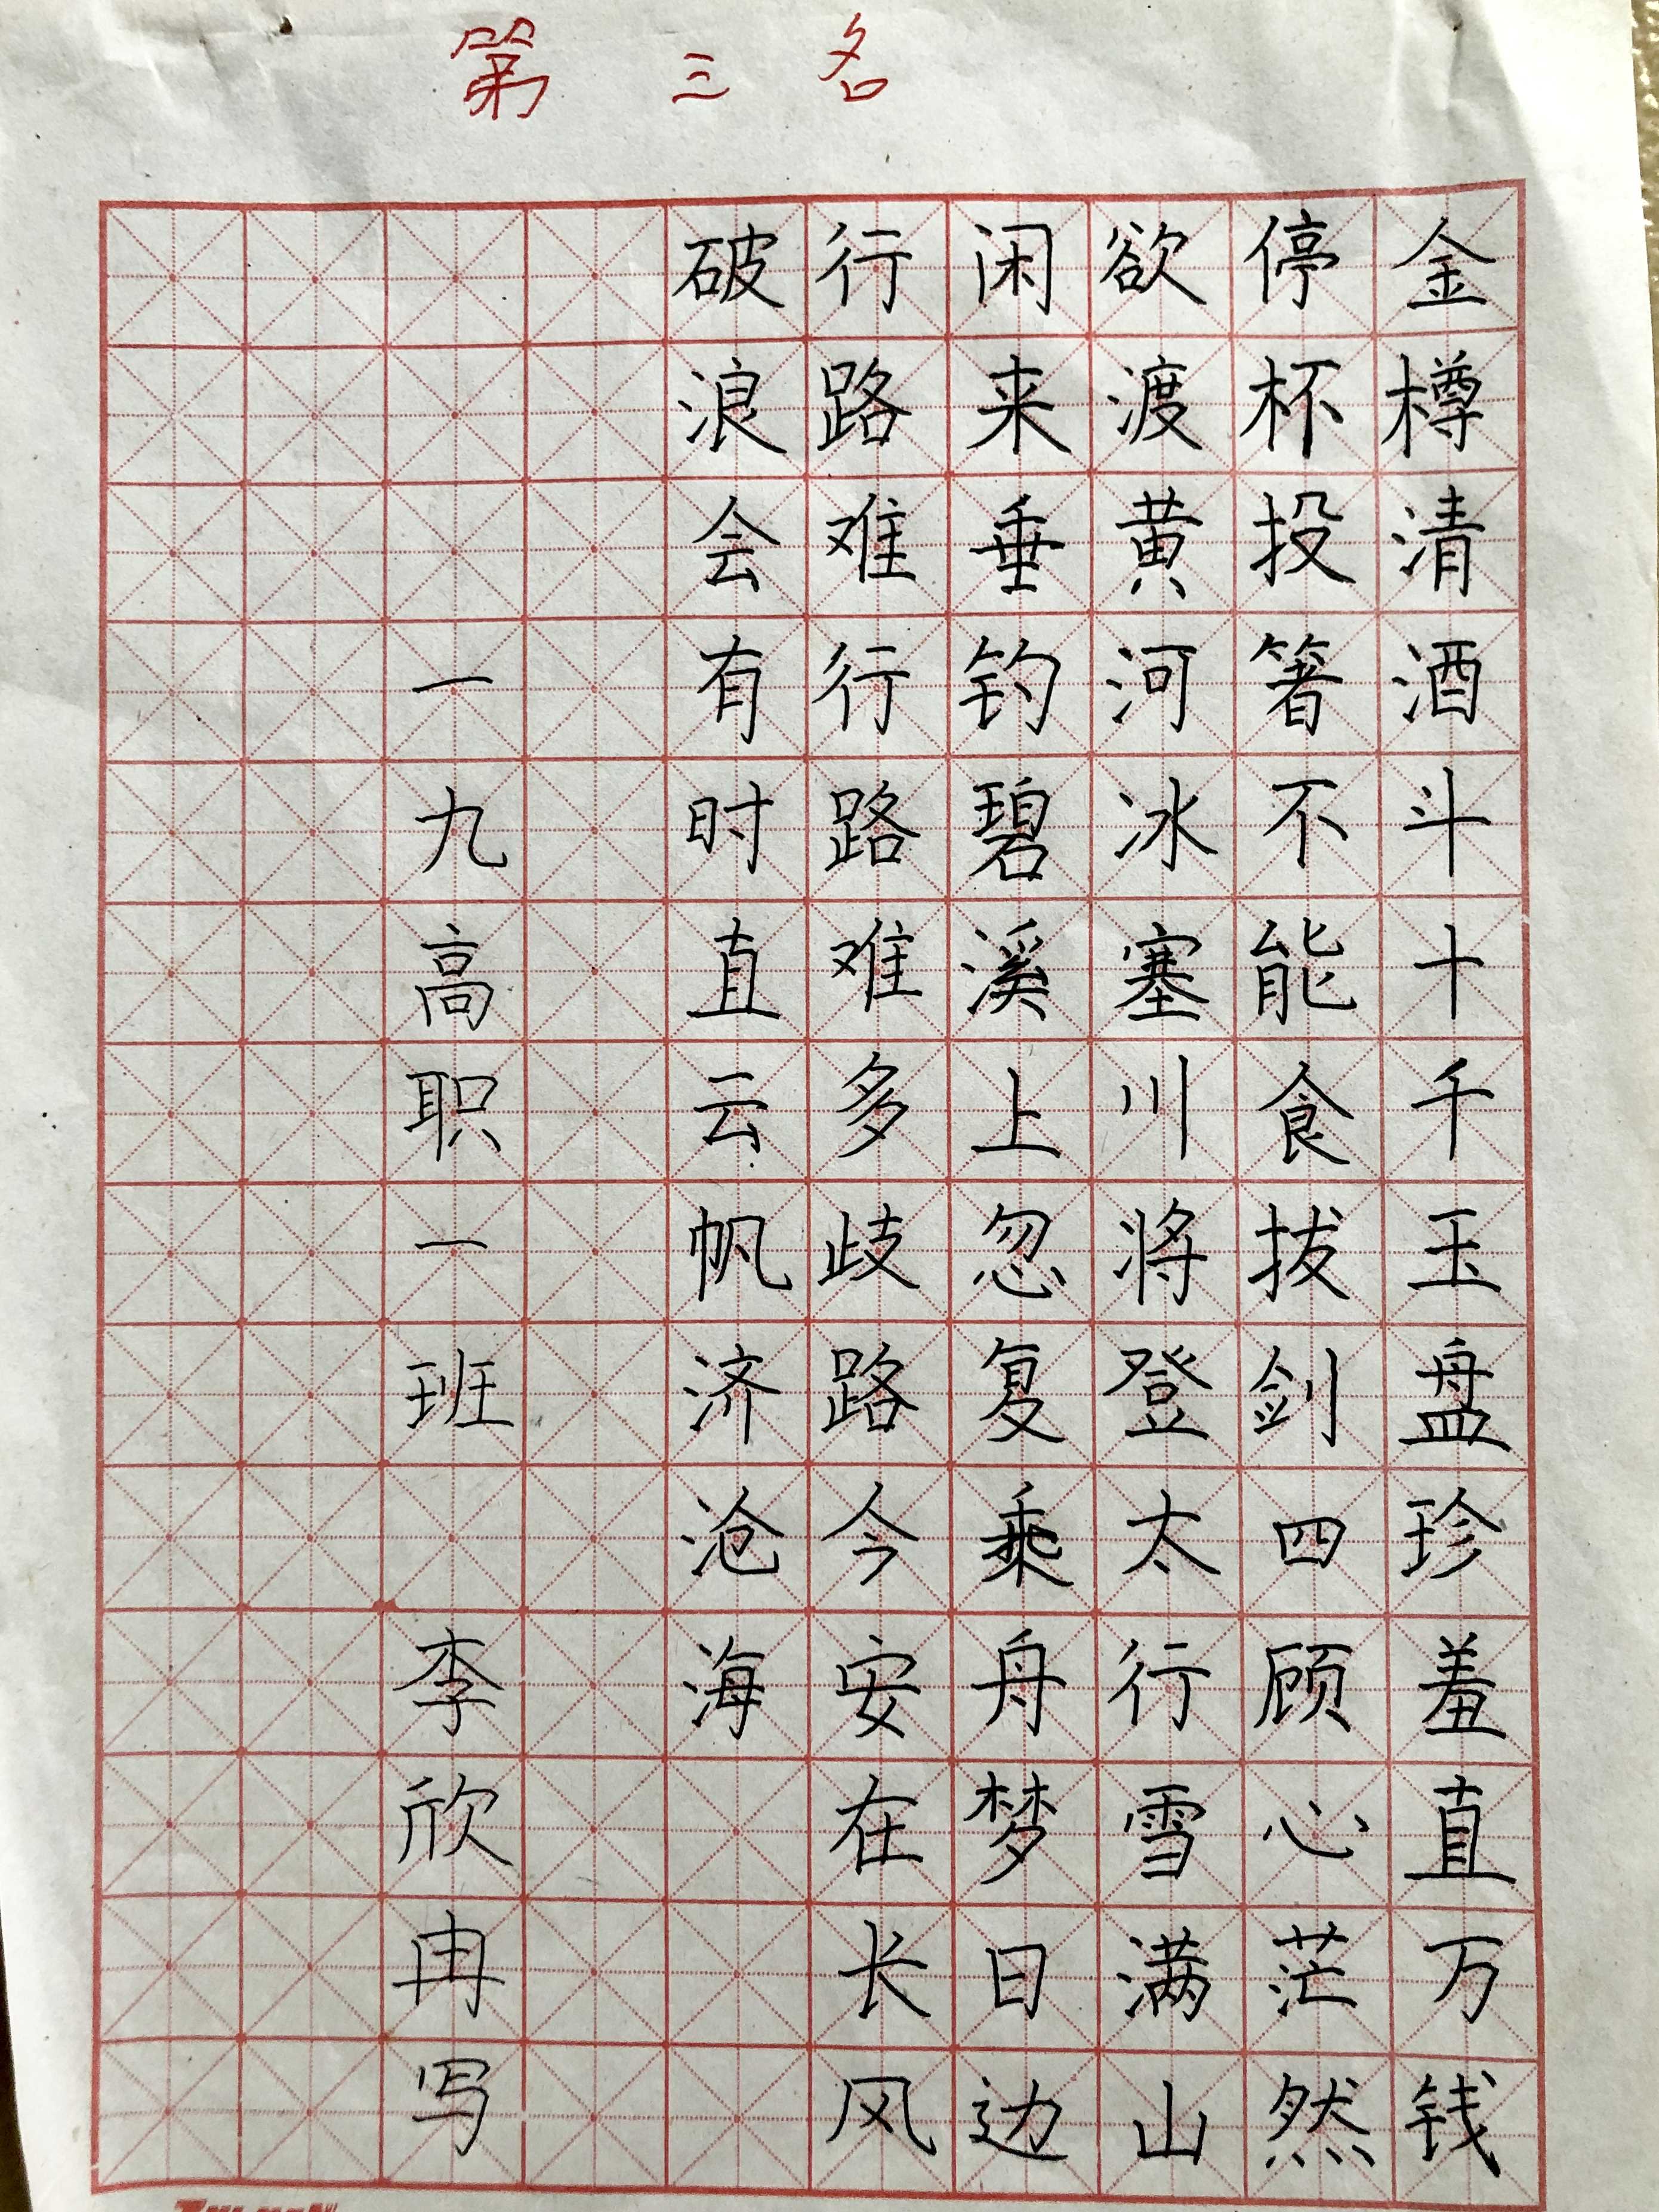 第三名
金樽清酒斗十千玉盘珍羞直万钱
停杯投箸不能食拔剑四顾心茫然
欲渡黄河冰塞川将登太行雪满山
闲来垂钓碧溪上忽复乘舟梦日边
行路难行路难多歧路今安在长风
破浪会有时直云帆济沧海
一九高职一班 李欣冉写